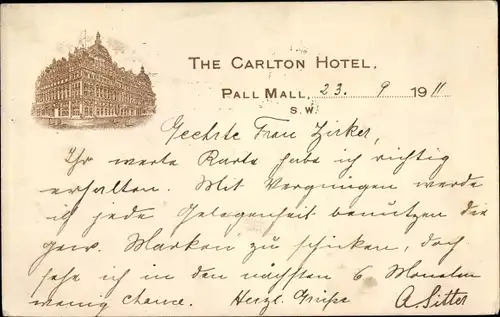 THE CARLTON HOTEL,
PALL MALL, 23. 9 1911
S.W.
Geehrte Frau Zirker,
Ihr werte Karte habe ich richtig
erhalten. Mit Vergnügen werde
ich jede Gelegenheit benutzen die
gew. Marken zu schicken, doch
sehe ich in den nächsten 6 Monaten
wenig chance. Herzl. Grüße
A. Sitter